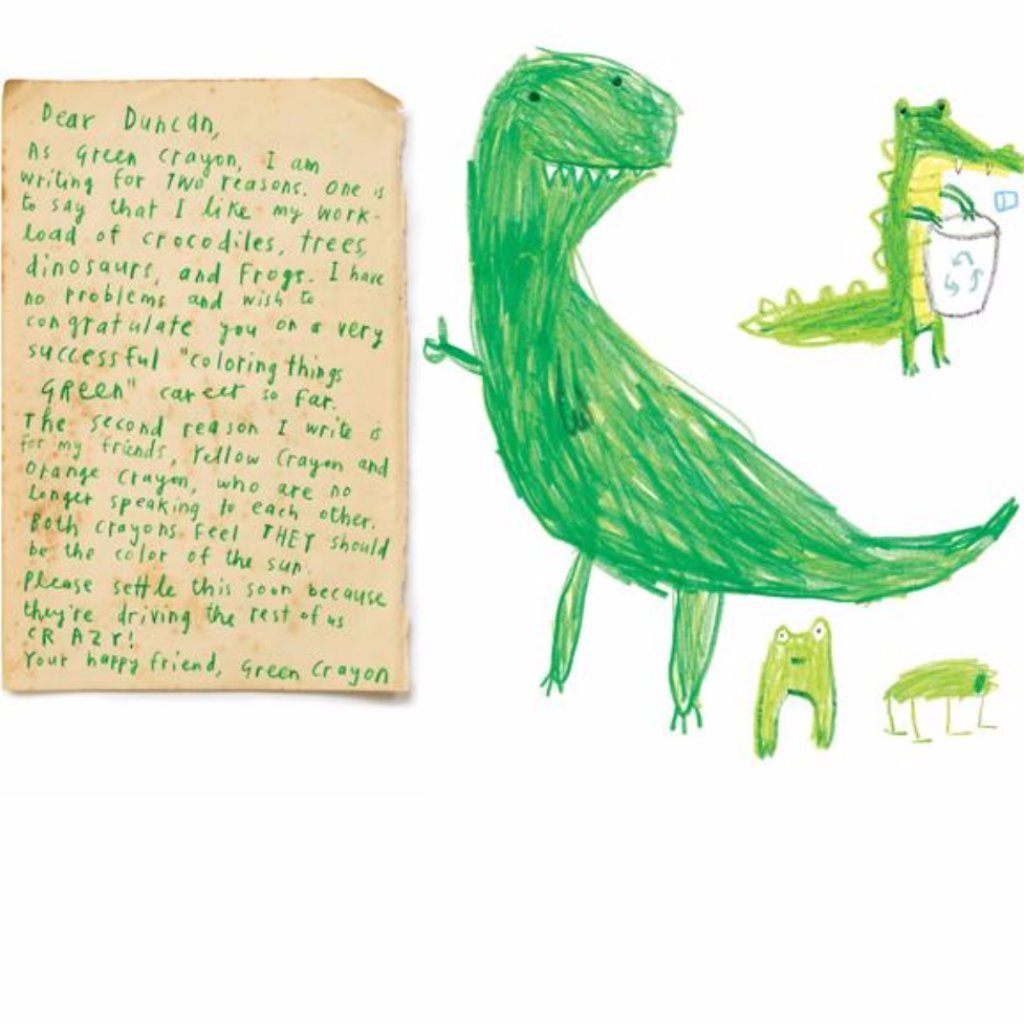 Dear Duncan,
As Green Crayon, I am
writing for TWO reasons. One is
to say that I like my work-
load of crocodiles, trees,
dinosaurs, and frogs. I have
no problems and wish to
congratulate you on a very
successful "coloring things
GREEN" career so far.
The second reason I write is
for my friends, Yellow Crayon and
Orange Crayon, who are no
longer speaking to each other.
Both crayons feel THEY should
be the color of the sun.
Please settle this soon because
they're driving the rest of us
CRAZY!
Your happy friend, Green Crayon